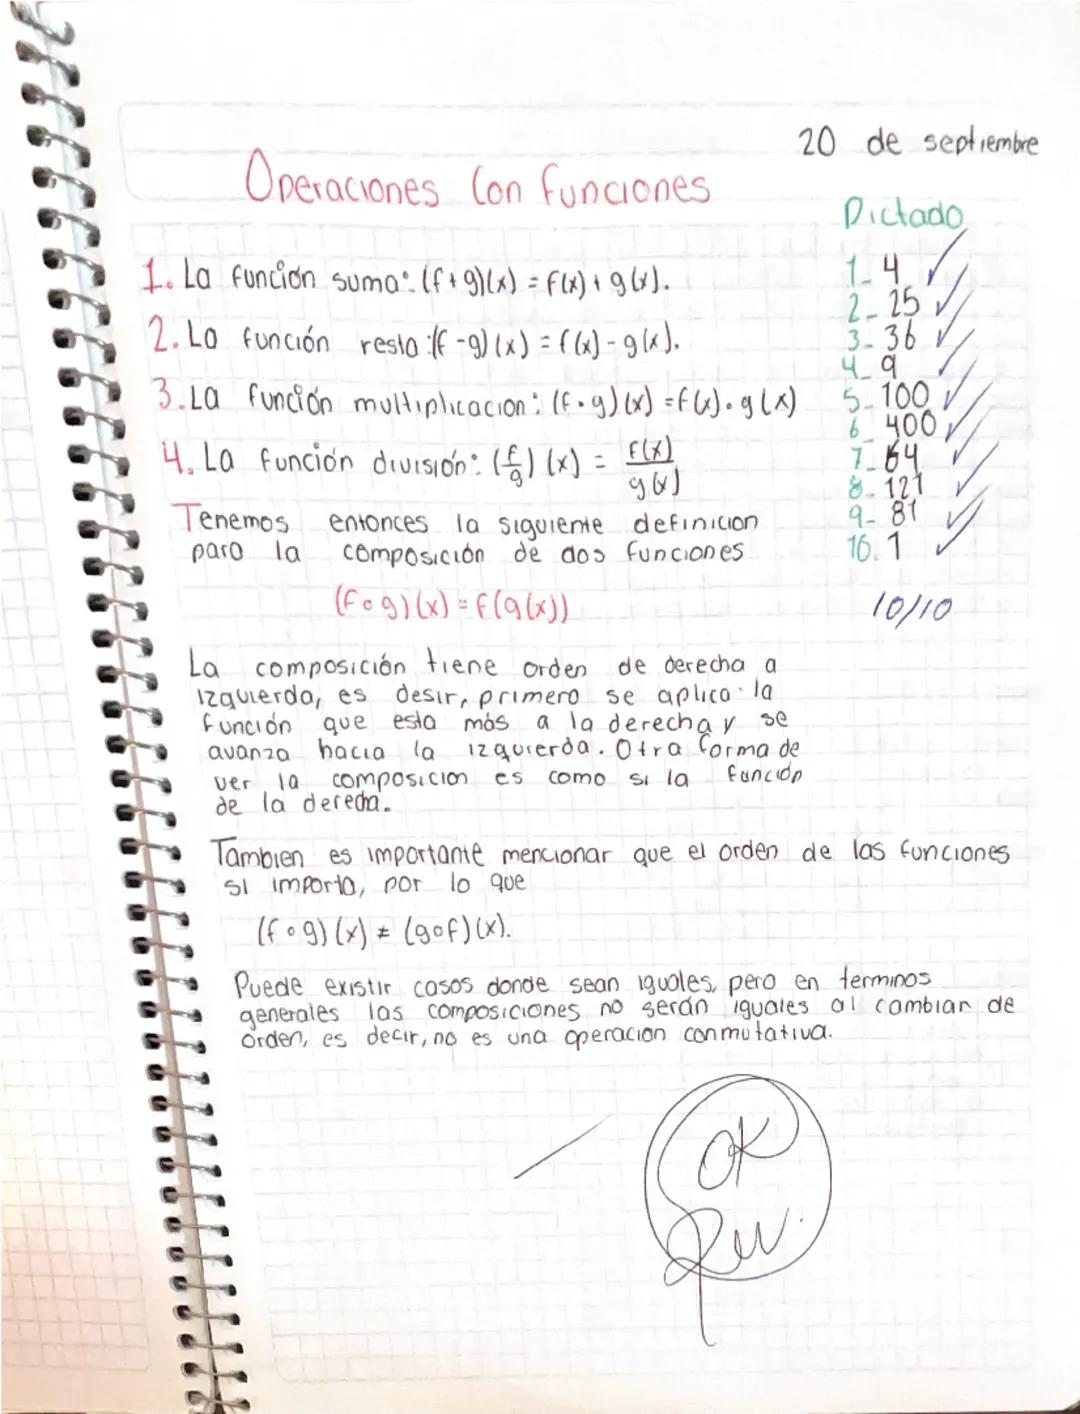 20 de septiembre
Operaciones Con funciones
1. La función suma: (f+g)(x) = f(x) + g(x).
2. La función resta: (f-g)(x) = f(x) - g(x).
3. La función multiplicacion: (f·g)(x) = f(x)·g(x)
4. La función división: (f/g)(x) = f(x)/g(x)
Tenemos entonces la siguiente definicion
para la composición de dos funciones
(f∘g)(x) = f(g(x))
La composición tiene orden de derecha a
izquierda, es desir, primero se aplica la
función que esta más a la derecha y se
avanza hacia la izquierda. Otra forma de
ver la composicion es como si la función
de la derecha.
Tambien es importante mencionar que el orden de las funciones
si importa, por lo que
(f∘g)(x) ≠ (g∘f)(x).
Puede existir casos donde sean iguales, pero en terminos
generales las composiciones no serán iguales al cambiar de
orden, es decir, no es una operacion conmutativa.
Dictado
1- 4
2- 25
3- 36
4- 9
5- 100
6- 400
7- 64
8- 121
9- 81
10. 1
10/10
OK
Rev.